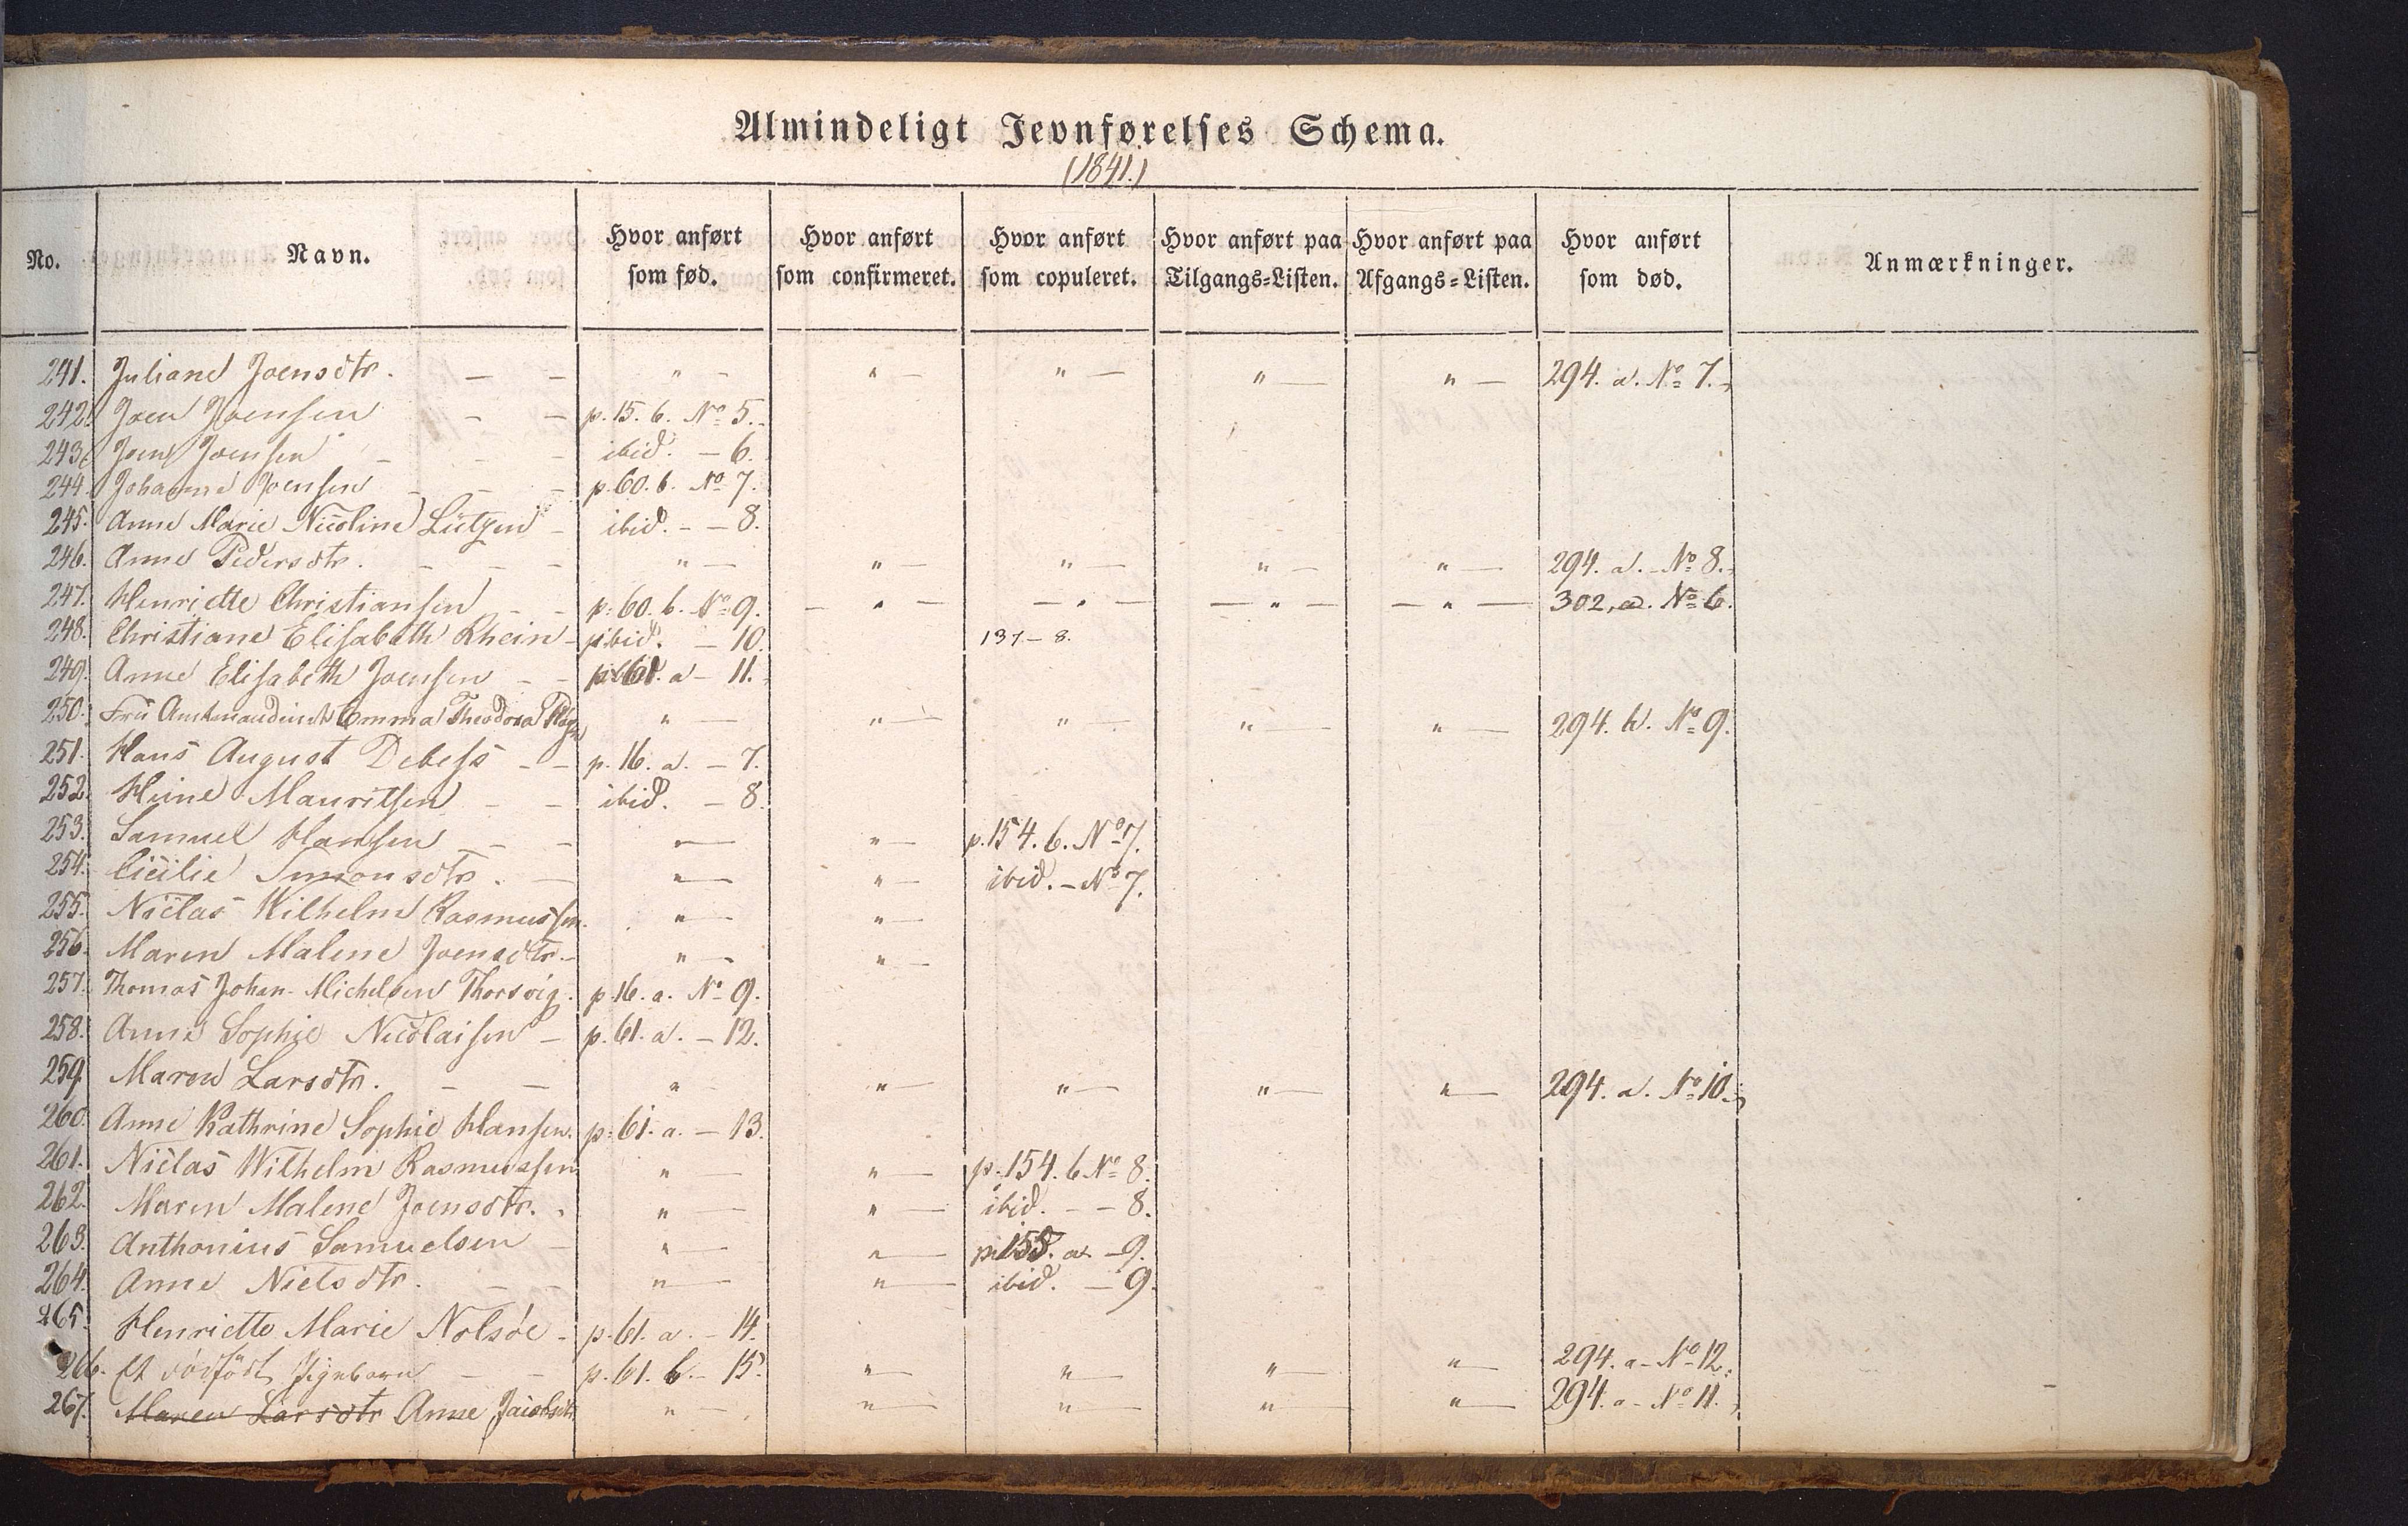 Almindeligt Jevnførelses Schema.
(1841.)
No. Navn. Hvor anført som fød. Hvor anført som confirmeret. Hvor anført som copuleret. Hvor anført paa Tilgangs-Listen. Hvor anført paa Afgangs-Listen. Hvor anført som død. Anmærkninger.
241. Juliane Joensdtr. — — " — " — " — " — " — 294. a. No 7.
242. Joen Joensen — — p. 15. b. No 5.
243. Jens Joensen — — — ibid. — 6.
244. Johanne Joensen — — — p. 60. b. No 7.
245. Anne Marie Nicoline Lützen — ibid. — — 8.
246. Anne Pedersdtr. — — — " — " — " — " — " — 294. a. — No 8.
247. Henriette Christiansen — — p. 60. b. No 9. — " — — " — — " — — " — 302. a. No 6.
248. Christiane Elisabeth Rhein — ibid. — 10. 137 — 8.
249. Anne Elisabeth Joensen — — p. 61. a — 11.
250. Frü Amtmandinde Emma Theodora " — " — " — " — " — 294. b. No 9.
251. Hans August Debess — — p. 16. a. — 7.
252. Heine Mauritsen — — ibid. — 8.
253. Samuel Hansen — — " — " — p. 154. b. No 7.
254. Cicilie Simonsdtr. — " — " — ibid. — No 7.
255. Niclas Wilhelm Rasmussen. " — " —
256. Maren Malene Joensdtr. — " — " —
257. Thomas Johan Michelsen Thorsvig. p. 16. a. No 9.
258. Anne Sophie Nicolaisen — p. 61. a. — 12.
259. Maren Larsdtr. — — " — " — " — " — " — 294. a. No 10.
260. Anne Kathrine Sophie Hansen. p. 61. a. — 13.
261. Niclas Wilhelm Rasmussen " — " — p. 154. b No 8.
262. Maren Malene Joensdtr. " — " — ibid. — — 8.
263. Anthonius Samuelsen — " — " — p. 155. a — 9.
264. Anne Nielsdtr. — — " — " — ibid. — 9.
265. Henriette Marie Nolsöe — p. 61. a. — 14.
266. Et dödfödt Pigebarn — — p. 61. b. — 15. " — " — " — " — 294. a — No 12.
267. Maren Larsdtr Anne Jacobsdtr " — " — " — " — " — 294. a — No 11.